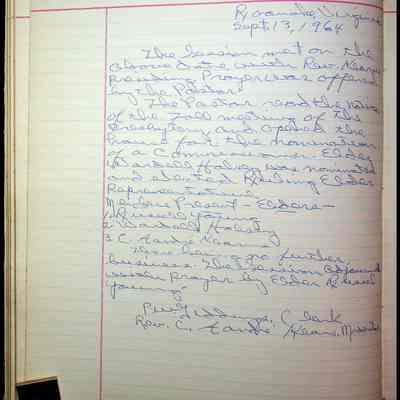 Roanoke, Virginia
Sept. 13, 1964
The Session met on the
above date with Rev. Kearns
Presiding. Prayer was offered
by the Pastor.
The Pastor read the notice
of the Fall meeting of the
Presbytery and opened the
house for the nomination
of a Commissioner. Elder
was nominated
and elected Ruling Elder
Representative.
Members Present - Elders -
1. Russell Young
2.
3. C. Kearns
There being no further
business the Session adjourned
with prayer by Elder Russell
Young.
Clerk
Rev. C. Kearns, Moderator